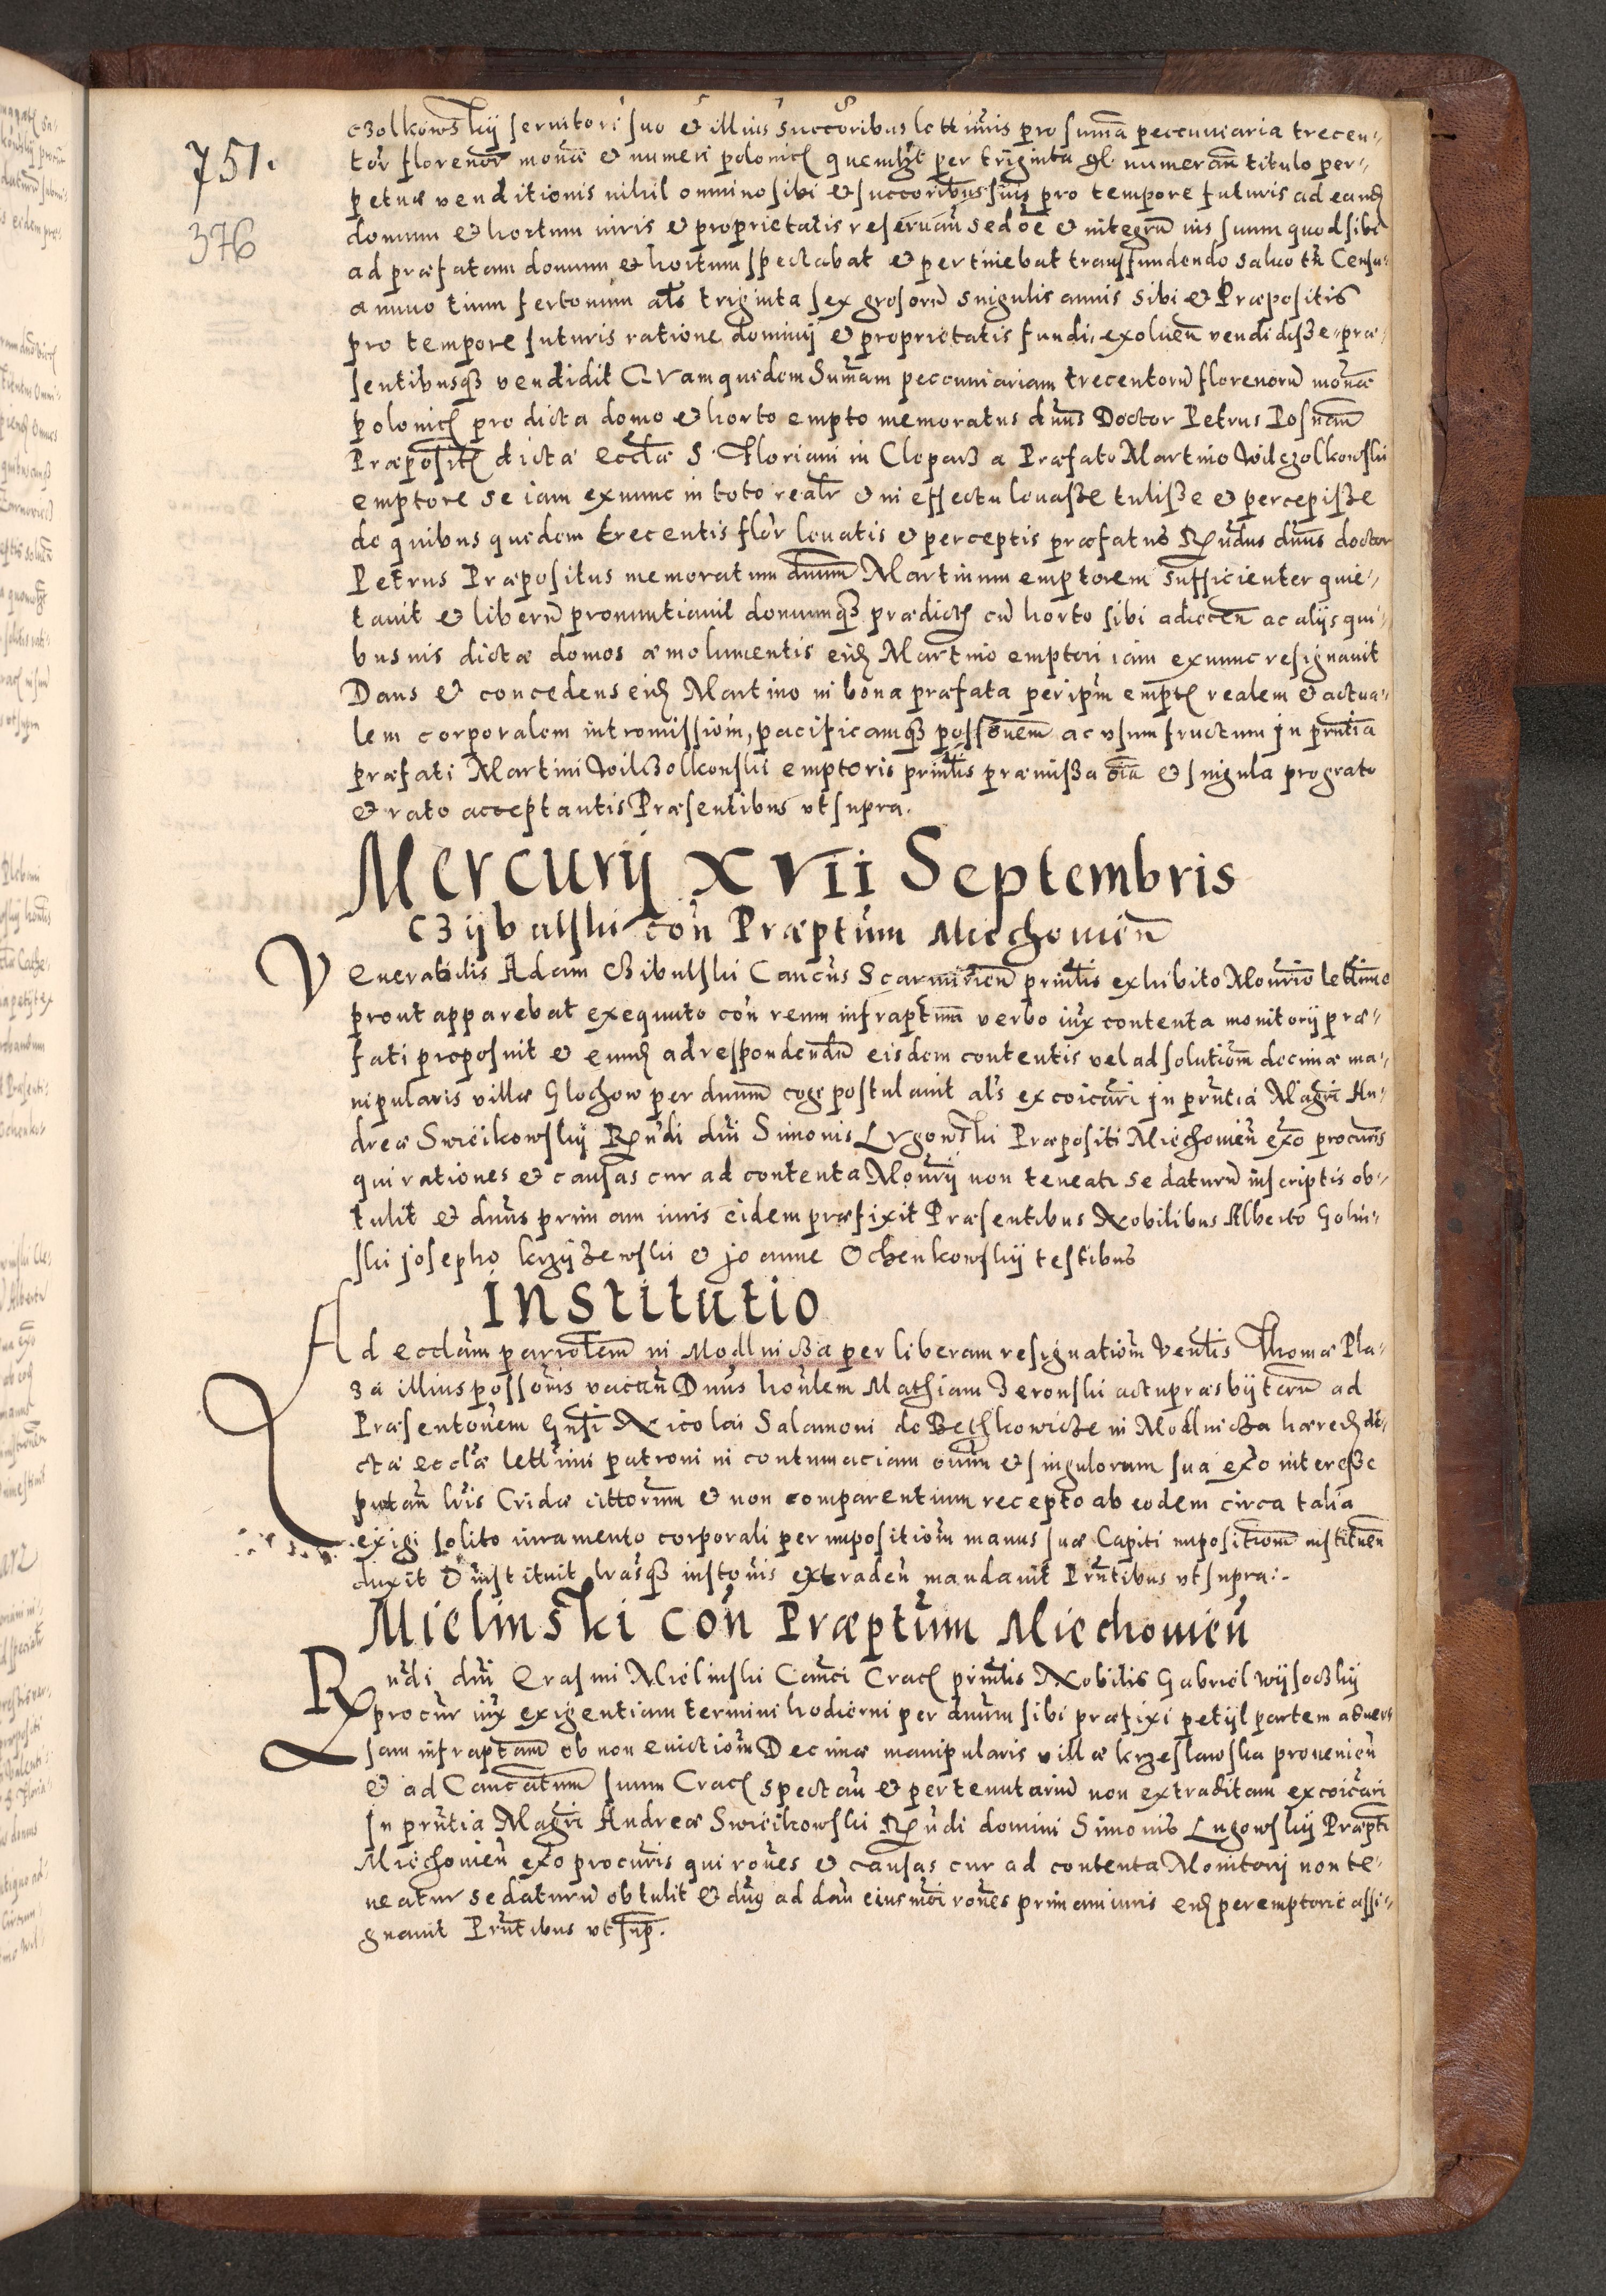 751.
376
czolkowskij seruitori suo et illius succoribus lettimis pro suma peccuniaria trecen-
tor florenor monæ et numeri polonicl quemlibet per triginta gl numeran titulo per-
petuæ venditionis nihil omnino sibi et succoribus suis pro tempore futuris ad eand
domum et hortum iuris et proprietatis reseruan sed oe et integru ius suum quod sibi
ad præfatam domum et hortum spectabat et pertinebat transfundendo saluo tn Censu
annuo trium fertonum als triginta sex grosoru singulis annis sibi et Præpositis
pro tempore futuris ratione dominij et proprietatis fundi, exoluen vendidisse præ-
sentibusq vendidit Quamquidem Sumam peccuniariam trecentoru florenoru monæ
polonicl pro dicta domo et horto empto memoratus dnus Doctor Petrus Posnan
Præposit dictæ eccliæ S. Floriani in Clepars a Præfato Martino Wilczolkowski
emptore se iam exnunc in toto realr et in effectu leuasse tulisse et percepisse
de quibus quidem trecentis flor leuatis et perceptis præfatus Rndus dnus doctor
Petrus Præpositus memoratum dnum Martinum emptorem sufficienter quie-
tauit et liberu pronuntiauit domumq prædict cu horto sibi adiecen ac alijs qui-
busuis dictæ domos æmolumentis eid Martino emptori iam exnunc resignauit
Dans et concedens eid Martino in bona præfata per ipm empt realem et actua-
lem corporalem intromissiom, pacificamq possonem ac vsumfructum jn prntia
præfati Martini Wilczolkowski emptoris prntlis præmissa oia et singula pro grato
et rato acceptantis Præsentibus vt supra.
Mercurij XVII Septembris
Czijbulski con Præptum Miechouien
Venerabilis Adam Cibulski Cancus Scarmirien prntlis exhibito Monrio lettime
prout apparebat exequuto con reum infraptum verbo iux contenta monitorij præ-
fati proposuit et eund ad respondendu eisdem contentis vel ad solutiom decimæ ma-
nipularis villæ Glochow per dnum cogi postulauit als excoicari jn prntia Magri An-
dreæ Swieikowskij Rndi dni Simonis Lugowski Præpositi Miechouien exo procuris
qui rationes et causas cur ad contenta Monrij non teneatr se daturu in scriptis ob-
tulit et dnus prim am iuris eidem præfixit Præsentibus Nobilibus Alberto Golin-
ski josepho krzijzewski et joanne Ochenkowskij testibus
Institutio
Ad eccliam parrolem in Modlnicza per liberam resignatiom Venlis Thomæ Pla-
za illius possoris vacan Dnus honlem Mathiam Zeronski actu præsbyteru ad
Præsentonem Gnsi Nicolai Salamoni de Bethkowicze in Modlnicza hæred di-
ctæ eccliæ lettimi patroni in contumaciam omnium et singulorum sua exo interesse
putan lris Cridæ cittorum et non comparentium recepto ab eodem circa talia
exigi solito iuramento corporali per impositiom manus suæ Capiti impositiom instituen
duxit et instituit lrasq instonis extraden mandauit Prntibus vt supra.
Mielinski con Præptum Miechouien
Rndi dni Erasmi Mielinski Canci Cracl prntlis Nobilis Gabriel Wijsoczkij
procur iux exigentiam termini hodierni per dnum sibi præfixi petijt partem aduer
sam infraptam ob non euictiom Decimæ manipularis villæ krzeslawska prouenien
et ad Cancatum suum Cracl spectan et per tenutariu non extraditam excoicari
Jn prntia Magri Andreæ Swieikowski Rndi domini Simonis Lugowskij Præpti
Miechouien exo procuris qui rones et causas cur ad contenta Monitorij non te-
neatur se daturu obtulit et dnus ad dan eiusmoi rones primam iuris eid peremptorie assi-
gnauit Prntibus vt sup.